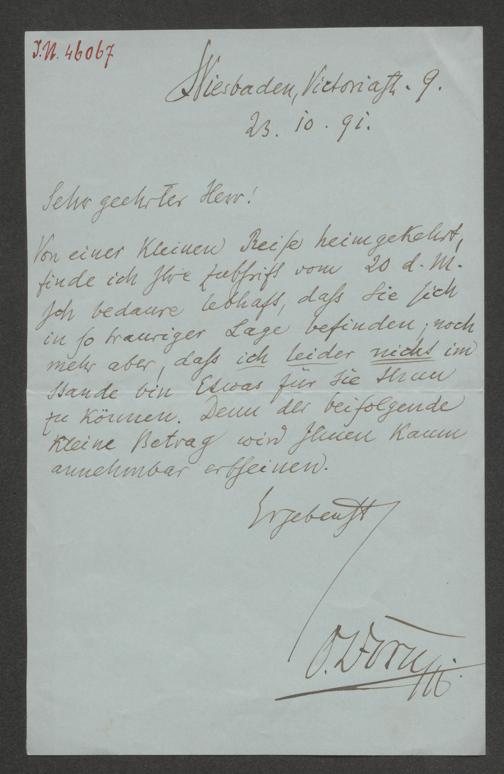 J.N. 46067
Wiesbaden, Victoriastr. 9.
23. 10. 91.
Sehr geehrter Herr!
Von einer kleinen Reise heimgekehrt,
finde ich Ihre Zuschrift vom 20 d. M.
Ich bedaure lebhaft, daß Sie sich
in so trauriger Lage befinden; noch
mehr aber, daß ich leider nicht im
Stande bin Etwas für Sie thun
zu können. Denn der beifolgende
kleine Betrag wird Ihnen kaum
annehmbar erscheinen.
Ergebenst
O. Dorn